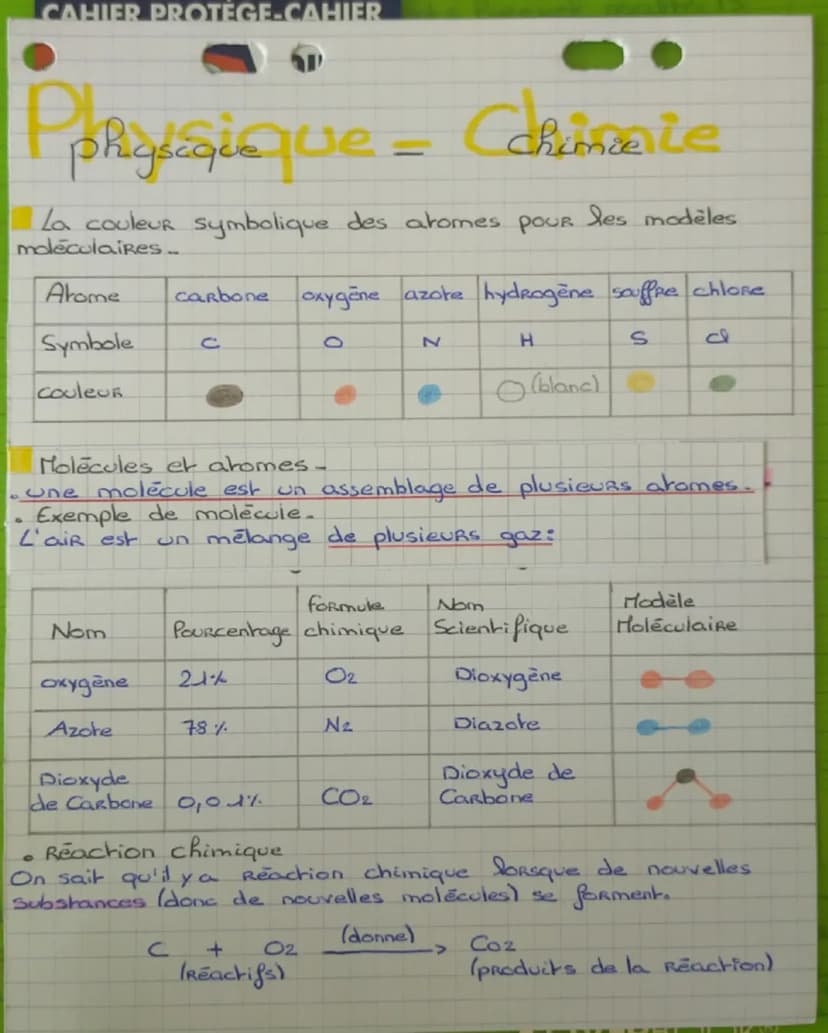 CAHIER PROTÈGE-CAHIER
Physique = Chimie
physique chimie
La couleur symbolique des atomes pour les modèles
moléculaires -
Atome carbone oxygène azote hydrogène souffre chlore
Symbole C O N H S Cl
Couleur (blanc)
Molécules et atomes -
• une molécule est un assemblage de plusieurs atomes.
• Exemple de molécule.
L'air est un mélange de plusieurs gaz :
Nom Pourcentage formule chimique Nom Scientifique Modèle Moléculaire
oxygène 21% O2 Dioxygène
Azote 78% N2 Diazote
Dioxyde de Carbone 0,01% CO2 Dioxyde de Carbone
• Réaction chimique
On sait qu'il y a Réaction chimique lorsque de nouvelles
substances (donc de nouvelles molécules) se forment.
C + O2 (donne) → CO2
(Réactifs) (produits de la Réaction)